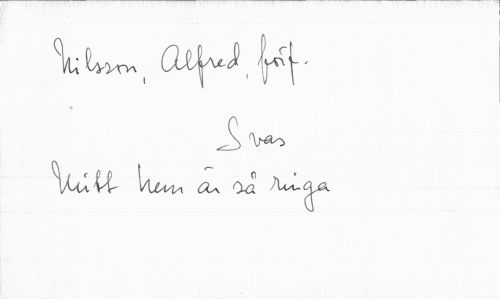 Nilsson, Alfred, förf.
Svas
Mitt hem är så ringa